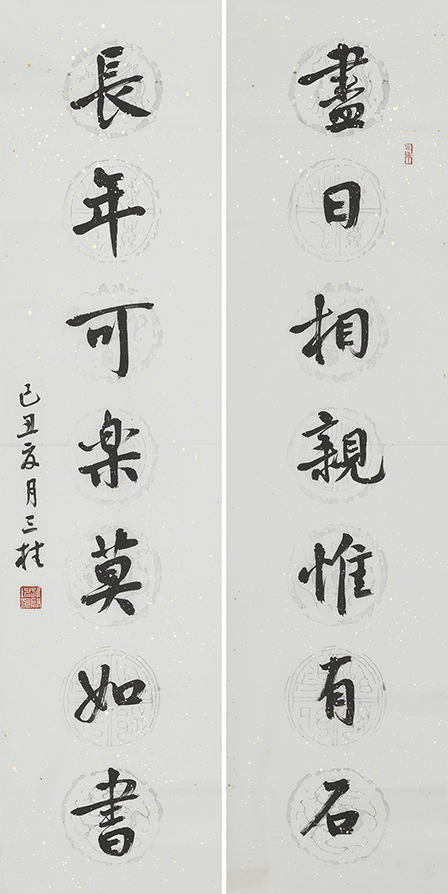 盡日相親惟有石
長年可楽莫如書
己丑夏月三桂